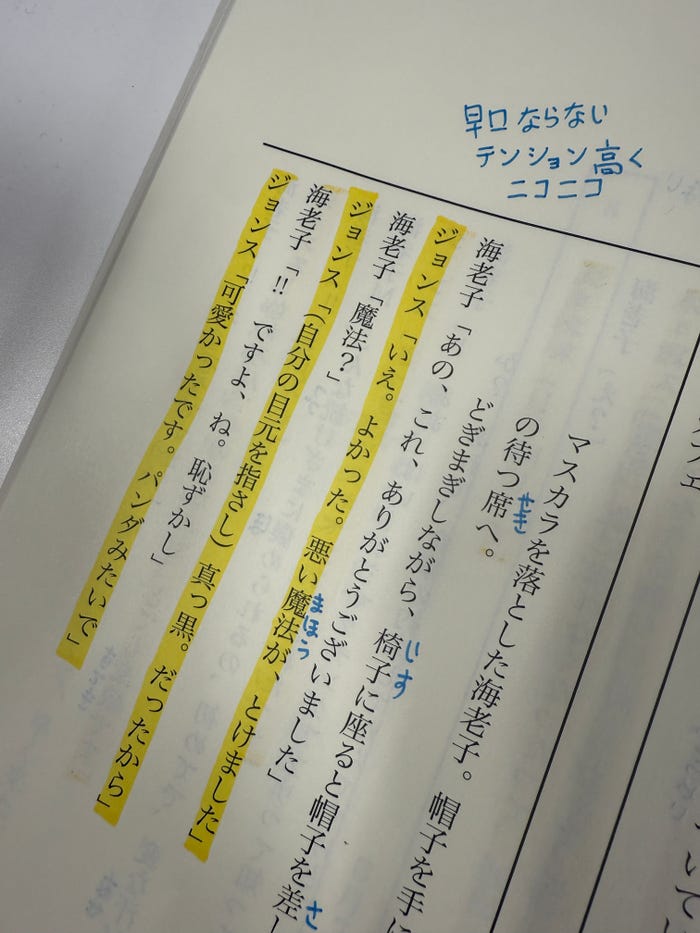 早口ならない
テンション高く
ニコニコ
マスカラを落とした海老子。帽子を手に
の待つ席へ。
せき
どぎまぎしながら、椅子に座ると帽子を差し
いす
さ
海老子「あの、これ、ありがとうございました」
ジョンス「いえ。よかった。悪い魔法が、とけました」
まほう
海老子「魔法?」
ジョンス「(自分の目元を指さし)真っ黒。だったから」
海老子「!! ですよ、ね。恥ずかし」
ジョンス「可愛かったです。パンダみたいで」